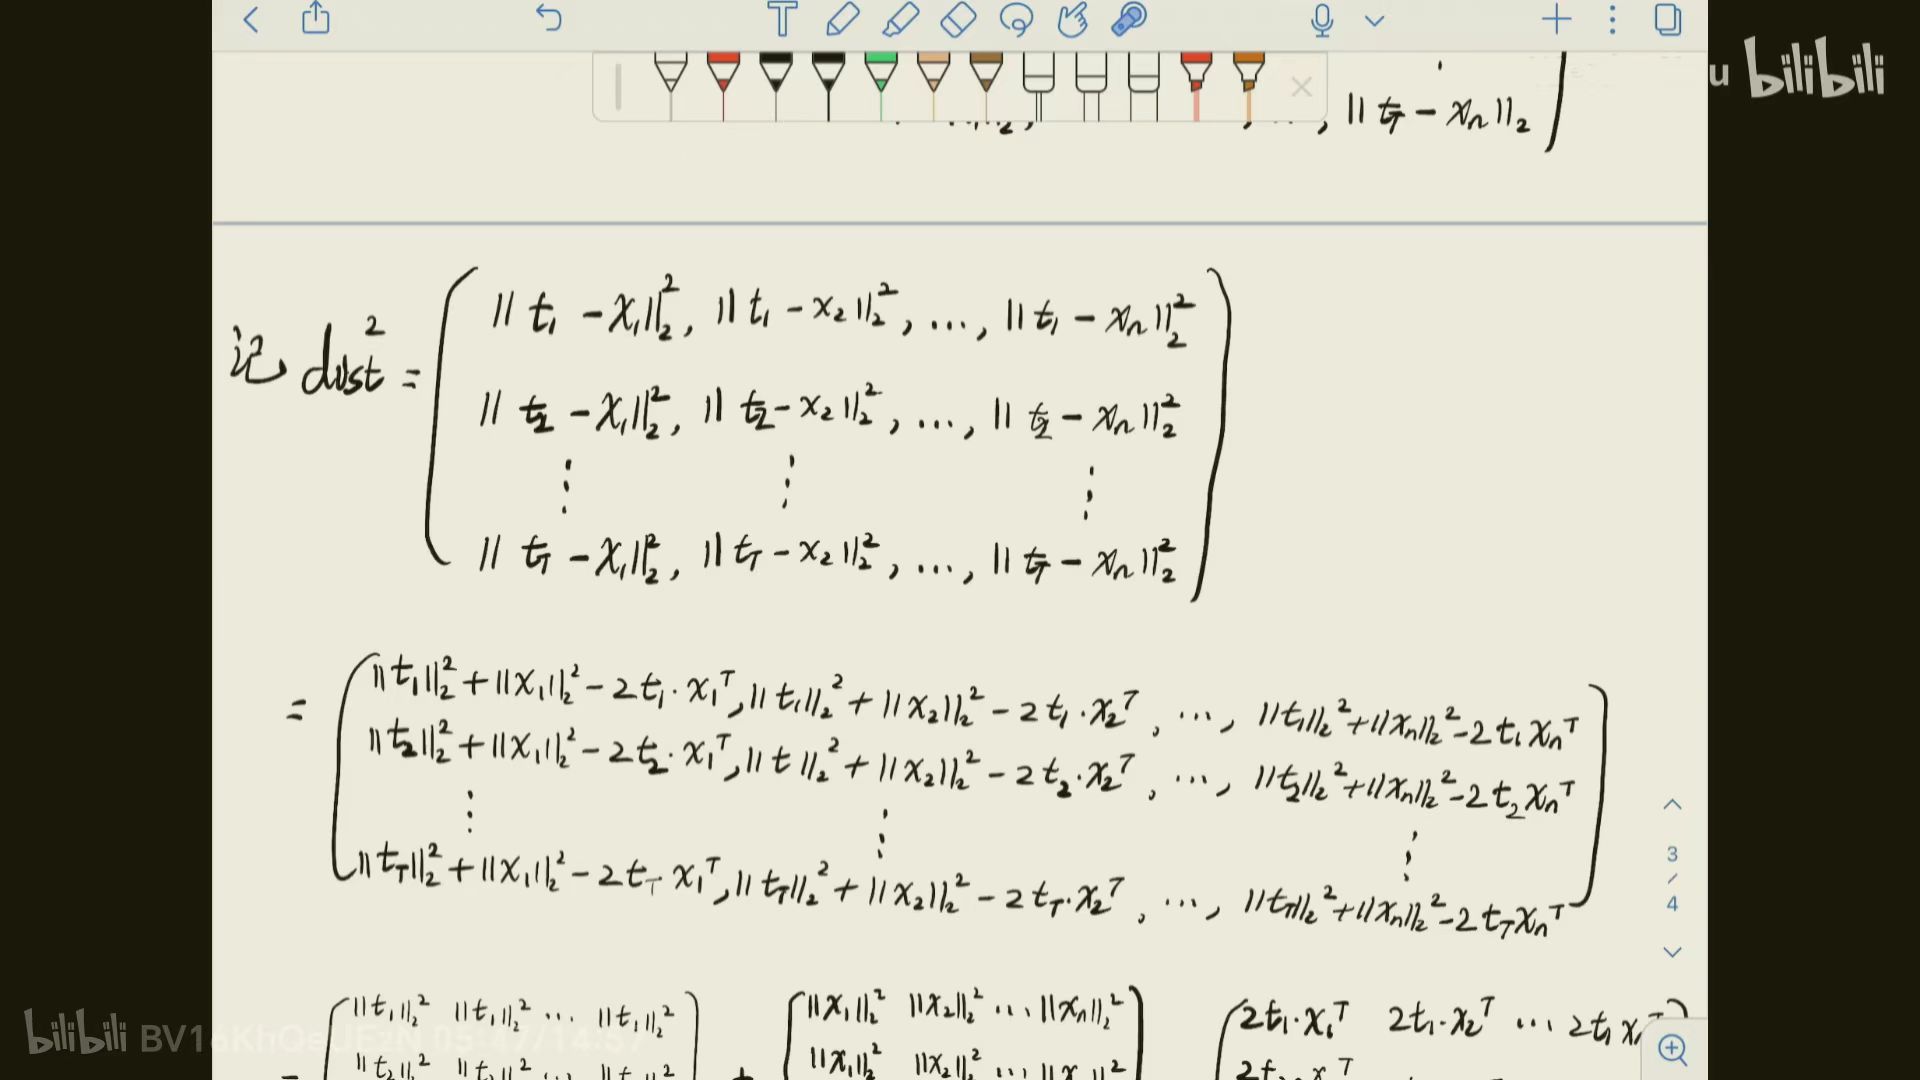 u bilibili
, ‖ t_T − x_n ‖_2
记 dist^2 =
‖ t_1 − x_1 ‖_2^2, ‖ t_1 − x_2 ‖_2^2, ..., ‖ t_1 − x_n ‖_2^2
‖ t_2 − x_1 ‖_2^2, ‖ t_2 − x_2 ‖_2^2, ..., ‖ t_2 − x_n ‖_2^2
⋮ ⋮ ⋮
‖ t_T − x_1 ‖_2^2, ‖ t_T − x_2 ‖_2^2, ..., ‖ t_T − x_n ‖_2^2
=
‖t_1‖_2^2 + ‖x_1‖_2^2 − 2t_1·x_1^T, ‖t_1‖_2^2 + ‖x_2‖_2^2 − 2t_1·x_2^T, ..., ‖t_1‖_2^2 + ‖x_n‖_2^2 − 2t_1x_n^T
‖t_2‖_2^2 + ‖x_1‖_2^2 − 2t_2·x_1^T, ‖t‖_2^2 + ‖x_2‖_2^2 − 2t_2·x_2^T, ..., ‖t_2‖_2^2 + ‖x_n‖_2^2 − 2t_2x_n^T
⋮ ⋮ ⋮
‖t_T‖_2^2 + ‖x_1‖_2^2 − 2t_T x_1^T, ‖t_T‖_2^2 + ‖x_2‖_2^2 − 2t_T·x_2^T, ..., ‖t_T‖_2^2 + ‖x_n‖_2^2 − 2t_Tx_n^T
3
/
4
‖t_1‖_2^2 ‖t_1‖_2^2 ... ‖t_1‖_2^2 ‖x_1‖_2^2 ‖x_2‖_2^2 ... ‖x_n‖_2^2 2t_1·x_1^T 2t_1·x_2^T ... 2t_1 x
= ‖t_2‖_2^2 ‖t_2‖_2^2 ... + ‖x_1‖_2^2 ‖x_2‖_2^2 ...
bilibili